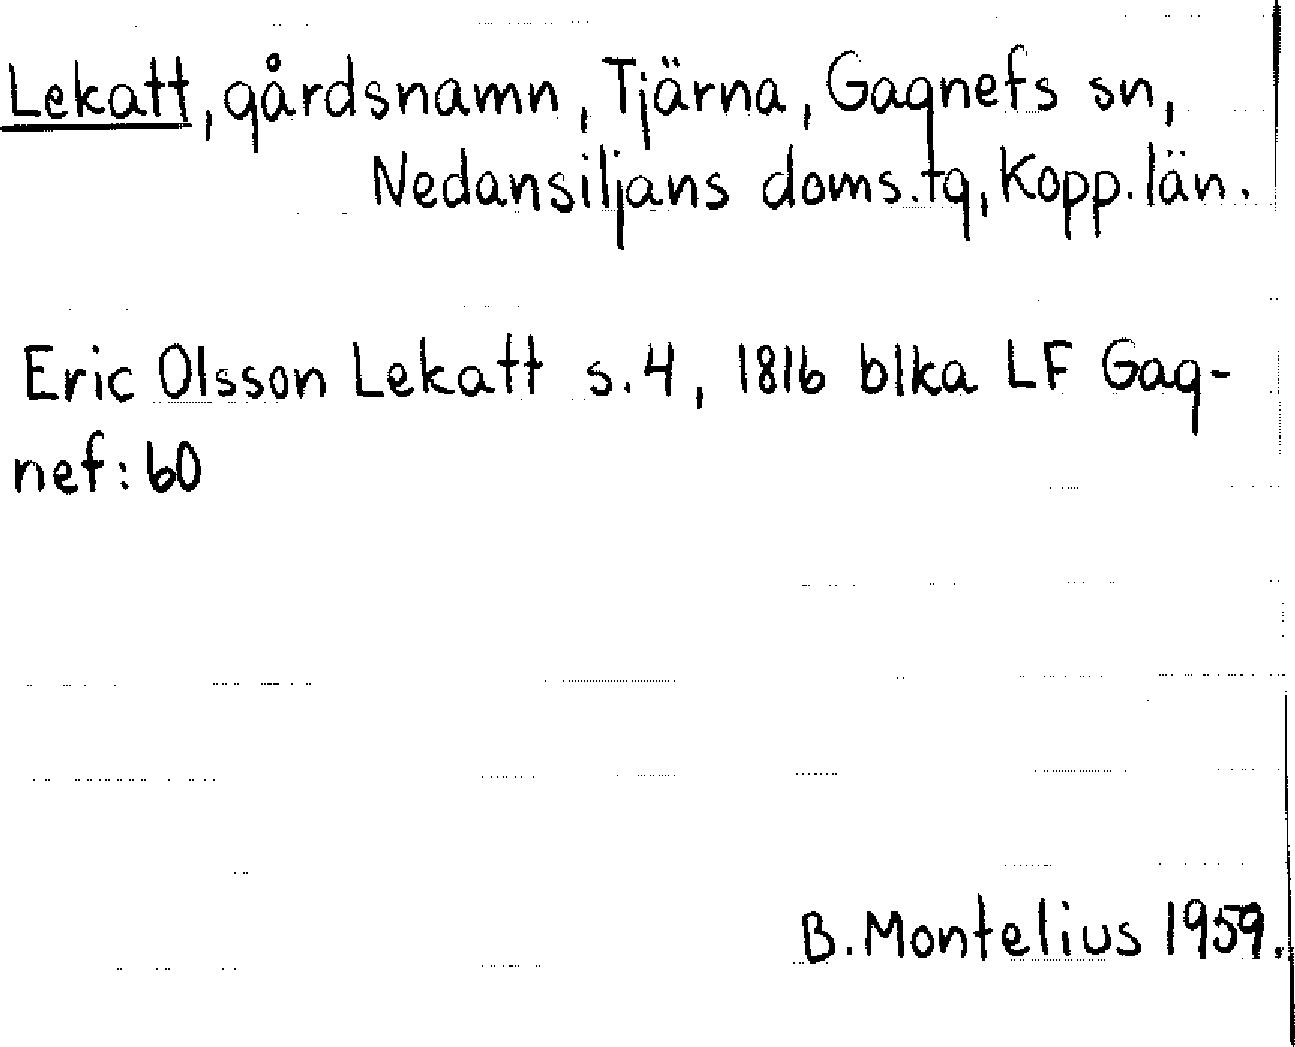 Lekatt, gårdsnamn, Tjärna, Gagnefs sn,
Nedansiljans doms.tg, Kopp. län.
Eric Olsson Lekatt s. 4, 1816 blka LF Gag-
nef: 60
B. Montelius 1959.